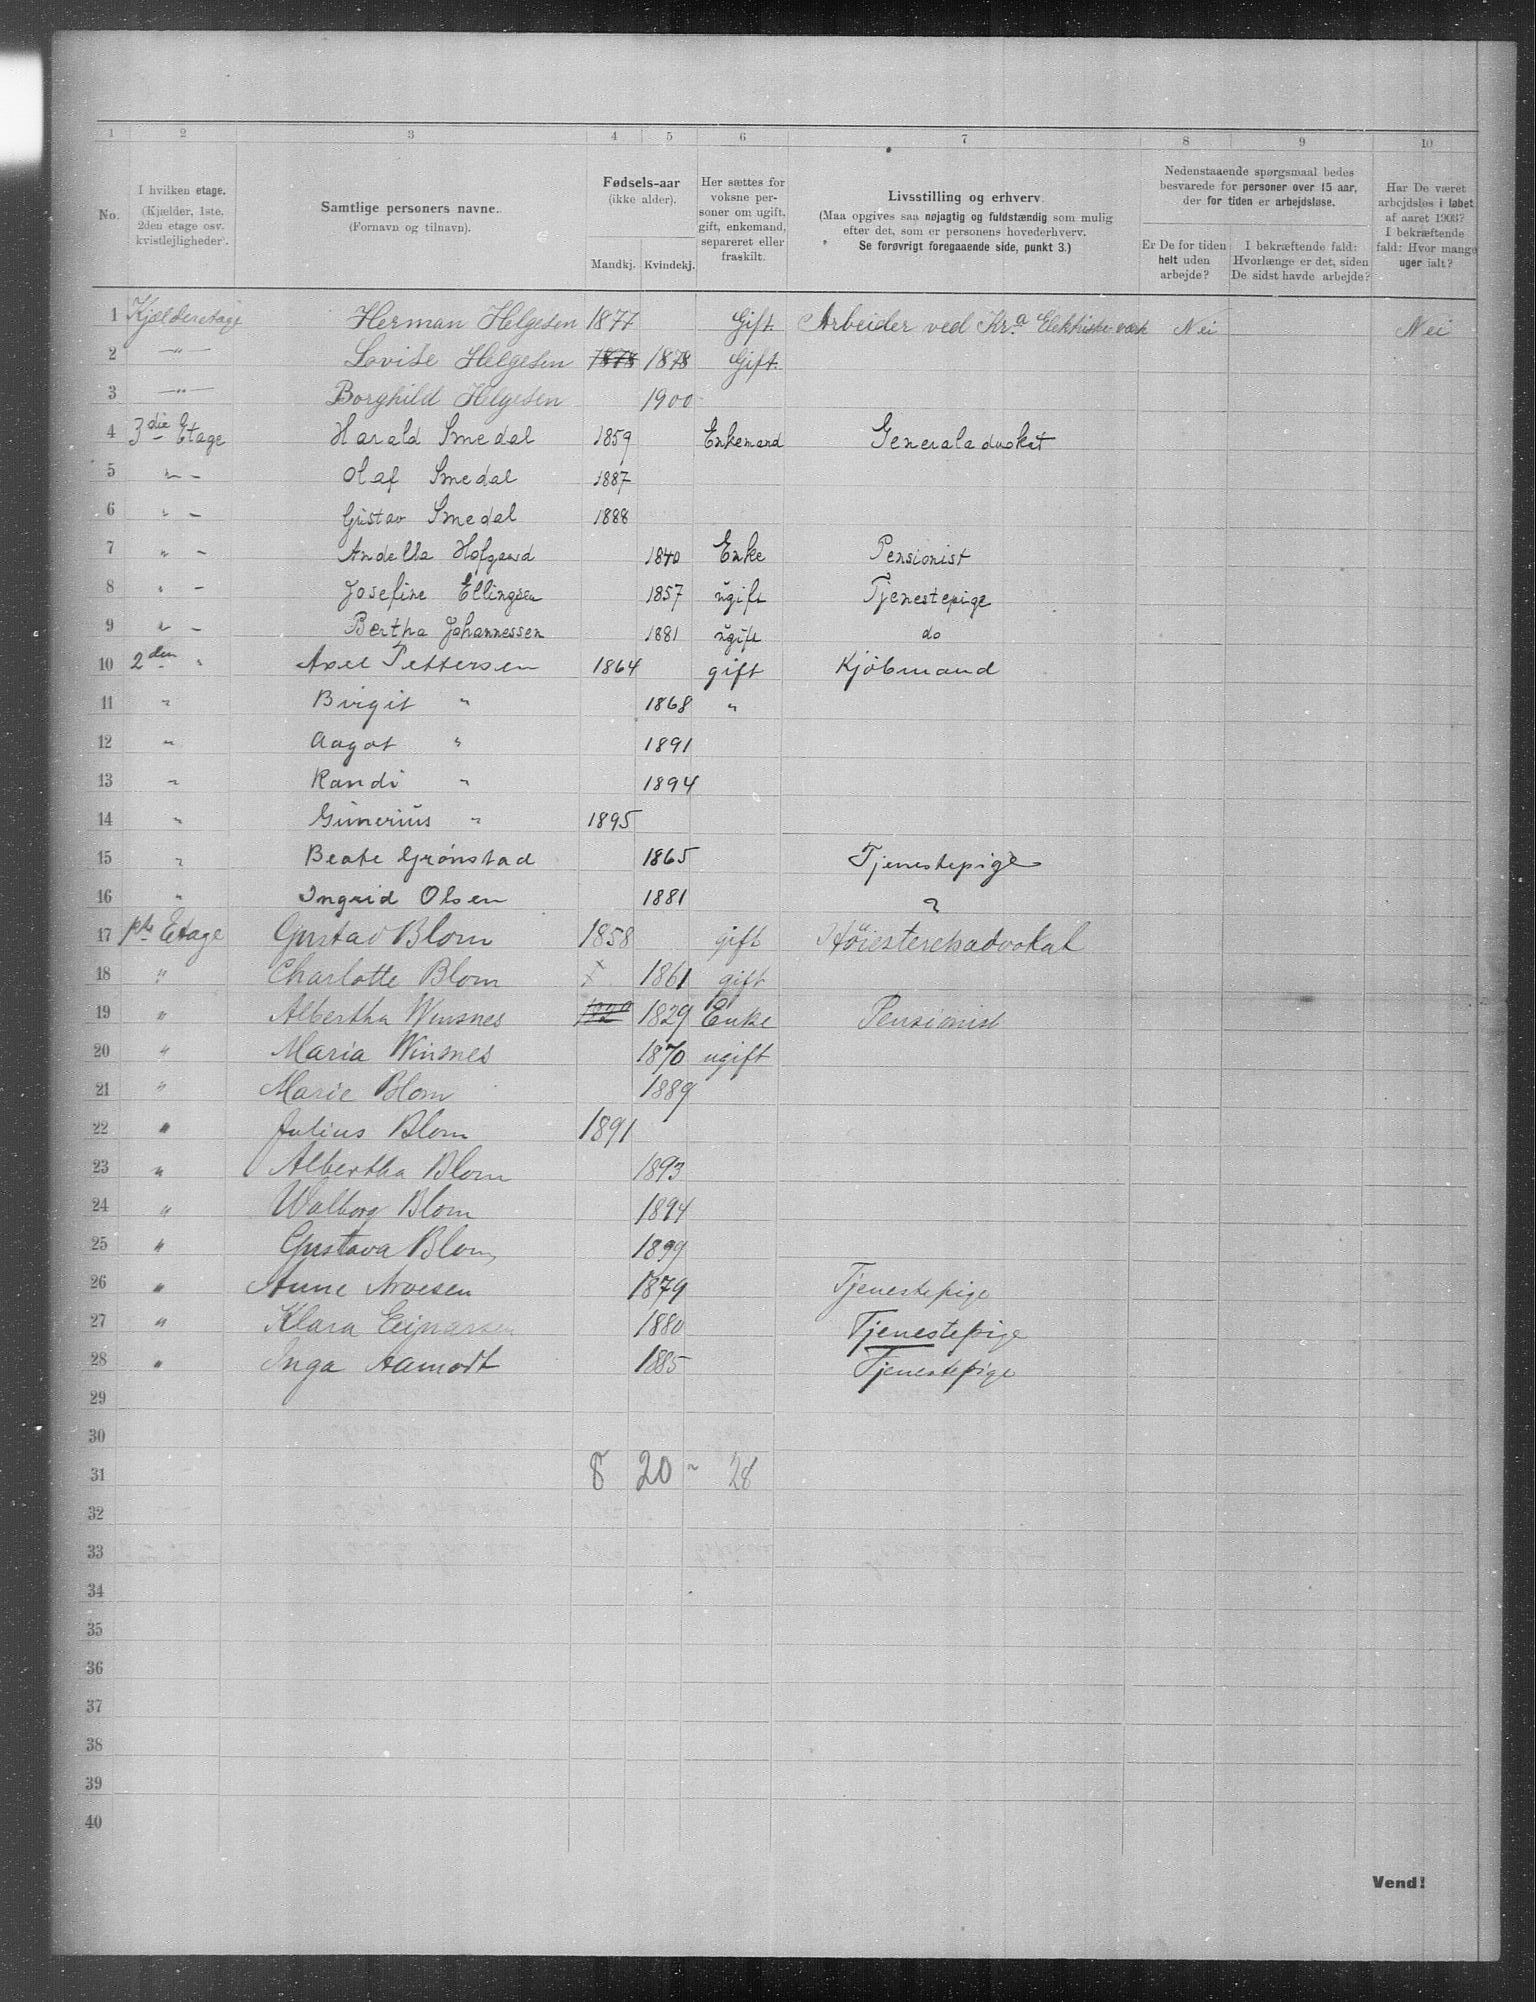 1 2 3 4 5 6 7 8 9 10
No. I hvilken etage. (Kjælder, 1ste, 2den etage osv. kvistlejligheder). Samtlige personers navne. (Fornavn og tilnavn). Fødsels-aar (ikke alder). Mandkj. Kvindekj. Her sættes for voksne personer om ugift, gift, enkemand, separeret eller fraskilt. Livsstilling og erhverv. (Maa opgives saa nøjagtig og fuldstændig som mulig efter det, som er personens hovederhverv. Se forøvrigt foregaaende side, punkt 3.) Nedenstaaende spørgsmaal bedes besvarede for personer over 15 aar, der for tiden er arbejdsløse. Er De for tiden helt uden arbejde? I bekræftende fald: Hvorlænge er det, siden De sidst havde arbejde? Har De været arbejdsløs i løbet af aaret 1903? I bekræftende fald: Hvor mange uger ialt?
1 Kjælderetage Herman Helgesen 1877 Gift Arbeider ved Kr.a Elektriske værk Nei Nei
2 -"- Lovise Helgesen 1878 1878 Gift
3 -"- Borghild Helgesen 1900
4 3die Etage Harald Smedal 1859 Enkemand Generaladvokat
5 " - Olaf Smedal 1887
6 " - Gustav Smedal 1888
7 " - Andella Hofgaard 1840 Enke Pensionist
8 " - Josefine Ellingsen 1857 ugift Tjenestepige
9 " - Bertha Johannessen 1881 ugift do
10 2den " Axel Pettersen 1864 gift Kjøbmand
11 " Birgit " 1868 "
12 " Aagot " 1891
13 " Randi " 1894
14 " Gunerius " 1895
15 " Beate Grønstad 1865 Tjenestepige
16 " Ingrid Olsen 1881 "
17 pte Etage Gustav Blom 1858 gift Høiesteretsadvokat
18 " Charlotte Blom x 1861 gift
19 " Albertha Winsnes 1829 Enke Pensionist
20 " Maria Winsnes 1870 ugift
21 " Marie Blom 1889
22 " Julius Blom 1891
23 " Albertha Blom 1893
24 " Walborg Blom 1894
25 " Gustava Blom 1899
26 " Anne Arvesen 1879 Tjenestepige
27 " Klara 1880 Tjenestepige
28 " Inga Aamodt 1885 Tjenestepige
29
30
31 8 20 - 28
32
33
34
35
36
37
38
39
40
Vend!